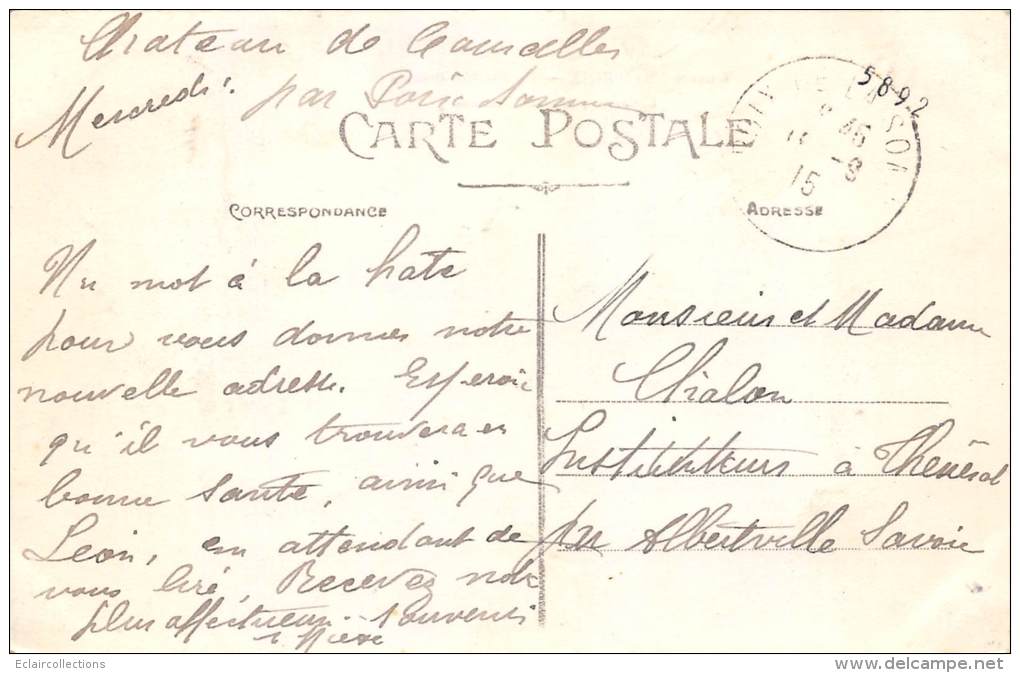 Chateau de Courcelles
Mercredi. par
5892
CARTE POSTALE
45
-8
15
CORRESPONDANCE
ADRESSE
Un mot à la hate
pour vous donner notre
nouvelle adresse. Esperois
qu'il vous trouvera en
bonne santé, ainsi que
Leon, en attendant de
vous lire, Recevez nos
plus affectueux souvenirs
Monsieur et Madame
Chalon
Instituteurs à Thénésol
par Albertville Savoie
Eclaircollections
www.delcampe.net